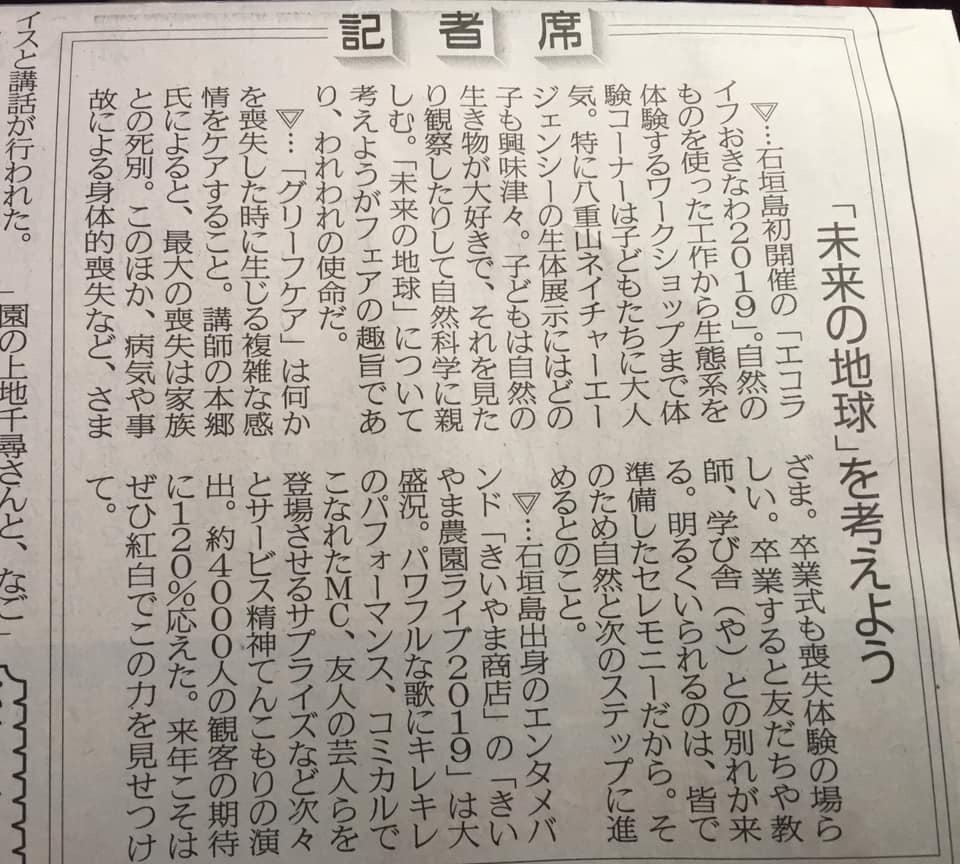 記者席
「未来の地球」を考えよう
▽…石垣島初開催の「エコラ
イフおきなわ2019」。自然の
ものを使った工作から生態系を
体験するワークショップまで体
験コーナーは子どもたちに大人
気。特に八重山ネイチャーエー
ジェンシーの生体展示にはどの
子も興味津々。子どもは自然の
生き物が大好きで、それを見た
り観察したりして自然科学に親
しむ。「未来の地球」について
考えようがフェアの趣旨であ
り、われわれの使命だ。
▽…「グリーフケア」は何か
を喪失した時に生じる複雑な感
情をケアすること。講師の本郷
氏によると、最大の喪失は家族
との死別。このほか、病気や事
故による身体的喪失など、さま
ざま。卒業式も喪失体験の場ら
しい。卒業すると友だちや教
師、学び舎（や）との別れが来
る。明るくいられるのは、皆で
準備したセレモニーだから。そ
のため自然と次のステップに進
めるとのこと。
▽…石垣島出身のエンタメバ
ンド「きいやま商店」の「きい
やま農園ライブ2019」は大
盛況。パワフルな歌にキレキレ
のパフォーマンス、コミカルで
こなれたMC、友人の芸人らを
登場させるサプライズなど次々
とサービス精神てんこもりの演
出。約4000人の観客の期待
に120％応えた。来年こそは
ぜひ紅白でこの力を見せつけ
て。
イスと講話が行われた。
園の上地千尋さんと、なご